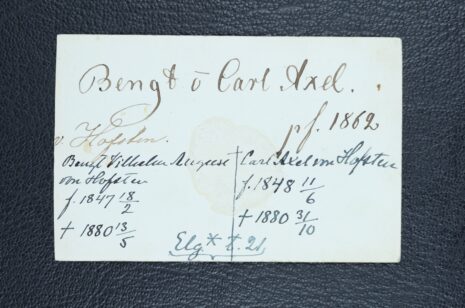 Bengt ō Carl Axel.
pf. 1862
v Hofsten.
Bengt Vilhelm August
von Hofsten
f. 1847 18/2
† 1880 13/5
Carl Axel von Hofsten
f. 1848 11/6
† 1880 31/10
Elg* t. 21